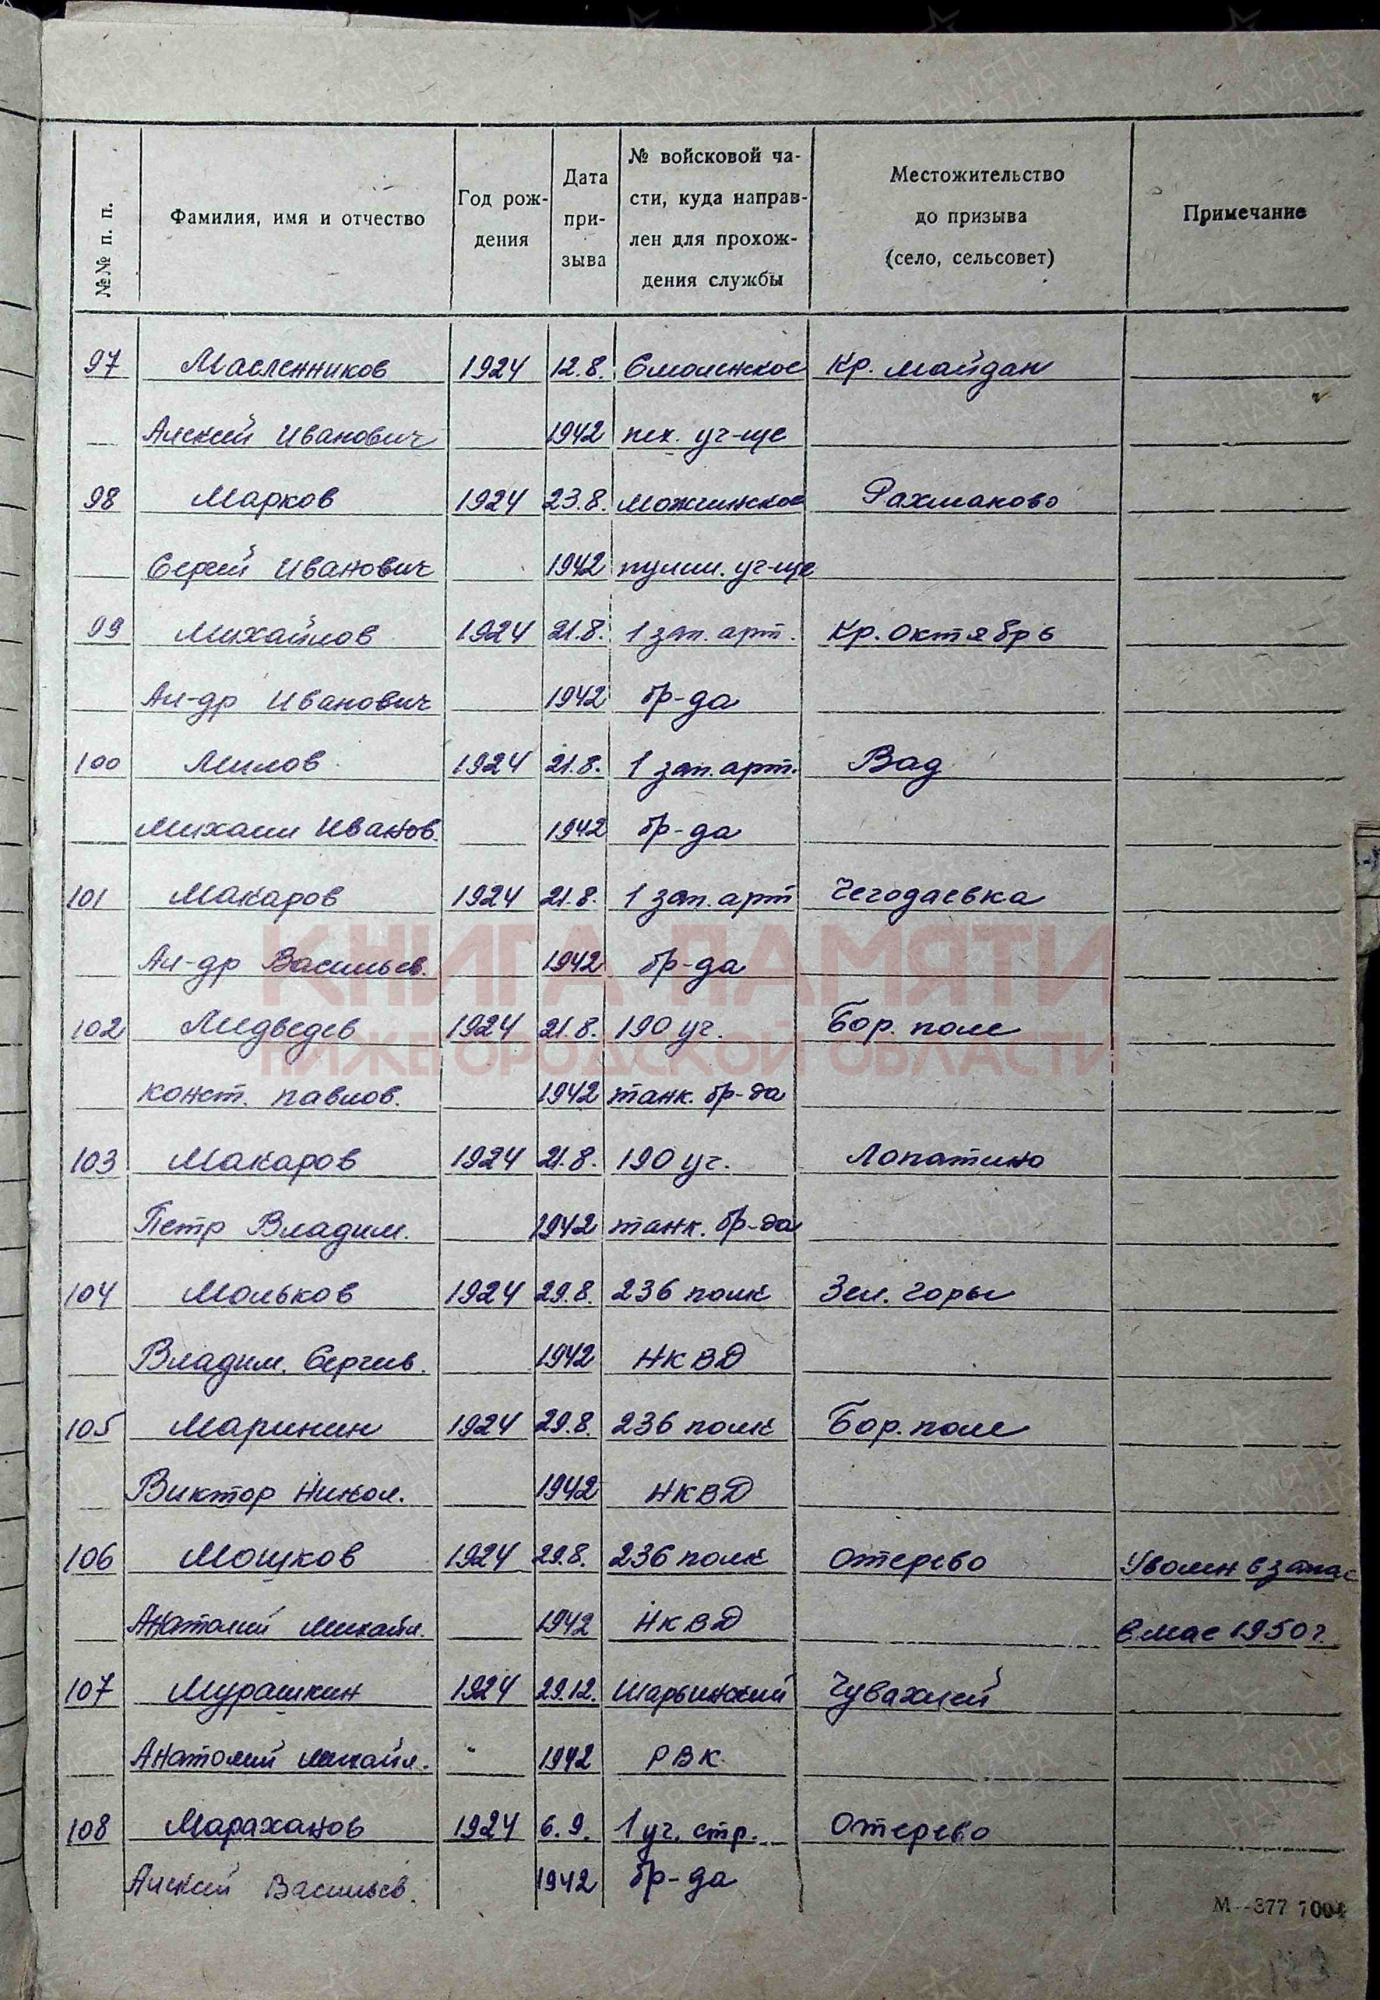 №№ п. п. Фамилия, имя и отчество Год рождения Дата призыва № войсковой части, куда направлен для прохождения службы Местожительство до призыва (село, сельсовет) Примечание
97 Масленников 1924 12.8. Смоленское Кр. Майдан
Алексей Иванович 1942 пех. уч-ще
98 Марков 1924 23.8. Можгинское Рахманово
Сергей Иванович 1942 пулем. уч-ще
99 Михайлов 1924 21.8. 1 зап. арт. Кр. Октябрь
Ал-др Иванович 1942 бр-да
100 Милов 1924 21.8. 1 зап. арт. Вад
Михаил Иванов. 1942 бр-да
101 Макаров 1924 21.8. 1 зап. арт Чегодаевка
Ал-др Васильев. 1942 бр-да
КНИГА ПАМЯТИ
102 Медведев 1924 21.8. 190 уч. Бор. поле
НИЖЕГОРОДСКОЙ ОБЛАСТИ
Конст. Павлов. 1942 танк. бр-да
103 Макаров 1924 21.8. 190 уч. Лопатино
Петр Владим. 1942 танк. бр-да
104 Мольков 1924 29.8. 236 полк Зел. Горы
Владим. Сергеев. 1942 НКВД
105 Маринин 1924 29.8. 236 полк Бор. поле
Виктор Никол. 1942 НКВД
106 Мошков 1924 29.8. 236 полк Отерево Уволен в запас
Анатолий Михайл. 1942 НКВД в мае 1950 г.
107 Мурашкин 1924 29.12. Шарьинский Чувахлей
Анатолий Михайл. 1942 РВК
108 Мараханов 1924 6.9. 1 уч. стр. Отерево
Алексей Васильев. 1942 бр-да
М-377 7004